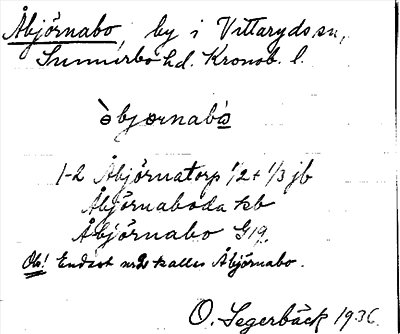 Åbjörnabo, by i Vittaryds sn,
Sunnerbo hd. Kronob. l.
òbjœrnabós
1-2 Åbjörnatorp 1/2 + 1/3 jb
Åbjörnaboda kb
Åbjörnabo G19.
Obs! Endast nr 2 kallas Åbjörnabo.
O. Segerbäck 1936.